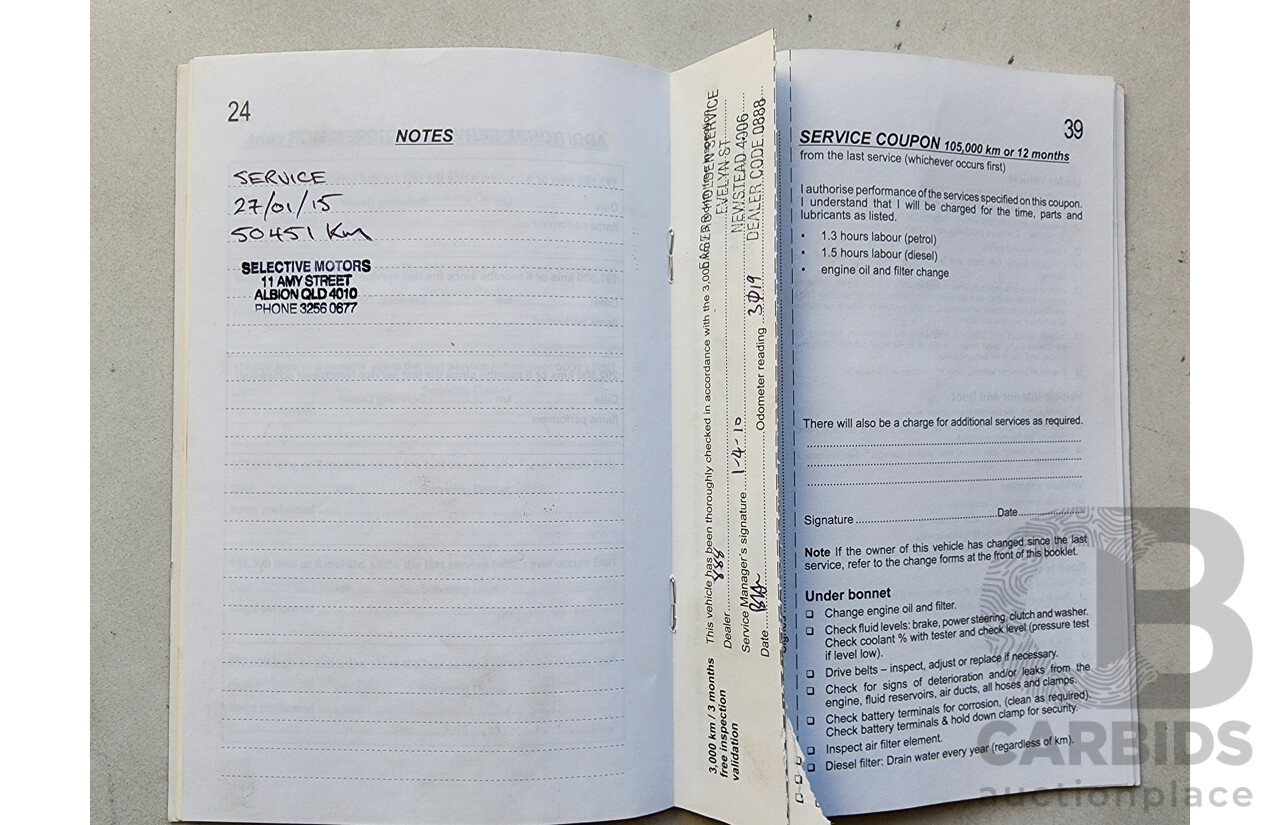 24
NOTES
SERVICE
27/01/15
50451 Km
SELECTIVE MOTORS
11 AMY STREET
ALBION QLD 4010
PHONE 3256 0677
3,000 km / 3 months
free inspection
validation
This vehicle has been thoroughly checked in accordance with the 3,000
HOLDEN SERVICE
EVELYN ST
NEWSTEAD 4006
DEALER CODE 0888
Dealer
888
Service Manager's signature
1-4-10
Date
Odometer reading 3019
39
SERVICE COUPON 105,000 km or 12 months
from the last service (whichever occurs first)
I authorise performance of the services specified on this coupon.
I understand that I will be charged for the time, parts and
lubricants as listed.
• 1.3 hours labour (petrol)
• 1.5 hours labour (diesel)
• engine oil and filter change
There will also be a charge for additional services as required.
Signature Date
Note If the owner of this vehicle has changed since the last
service, refer to the change forms at the front of this booklet.
Under bonnet
❑ Change engine oil and filter.
❑ Check fluid levels: brake, power steering, clutch and washer.
Check coolant % with tester and check level (pressure test
if level low).
❑ Drive belts – inspect, adjust or replace if necessary.
❑ Check for signs of deterioration and/or leaks from the
engine, fluid reservoirs, air ducts, all hoses and clamps.
❑ Check battery terminals for corrosion, (clean as required).
Check battery terminals & hold down clamp for security.
❑ Inspect air filter element.
❑ Diesel filter: Drain water every year (regardless of km).
CARBIDS
auctionplace